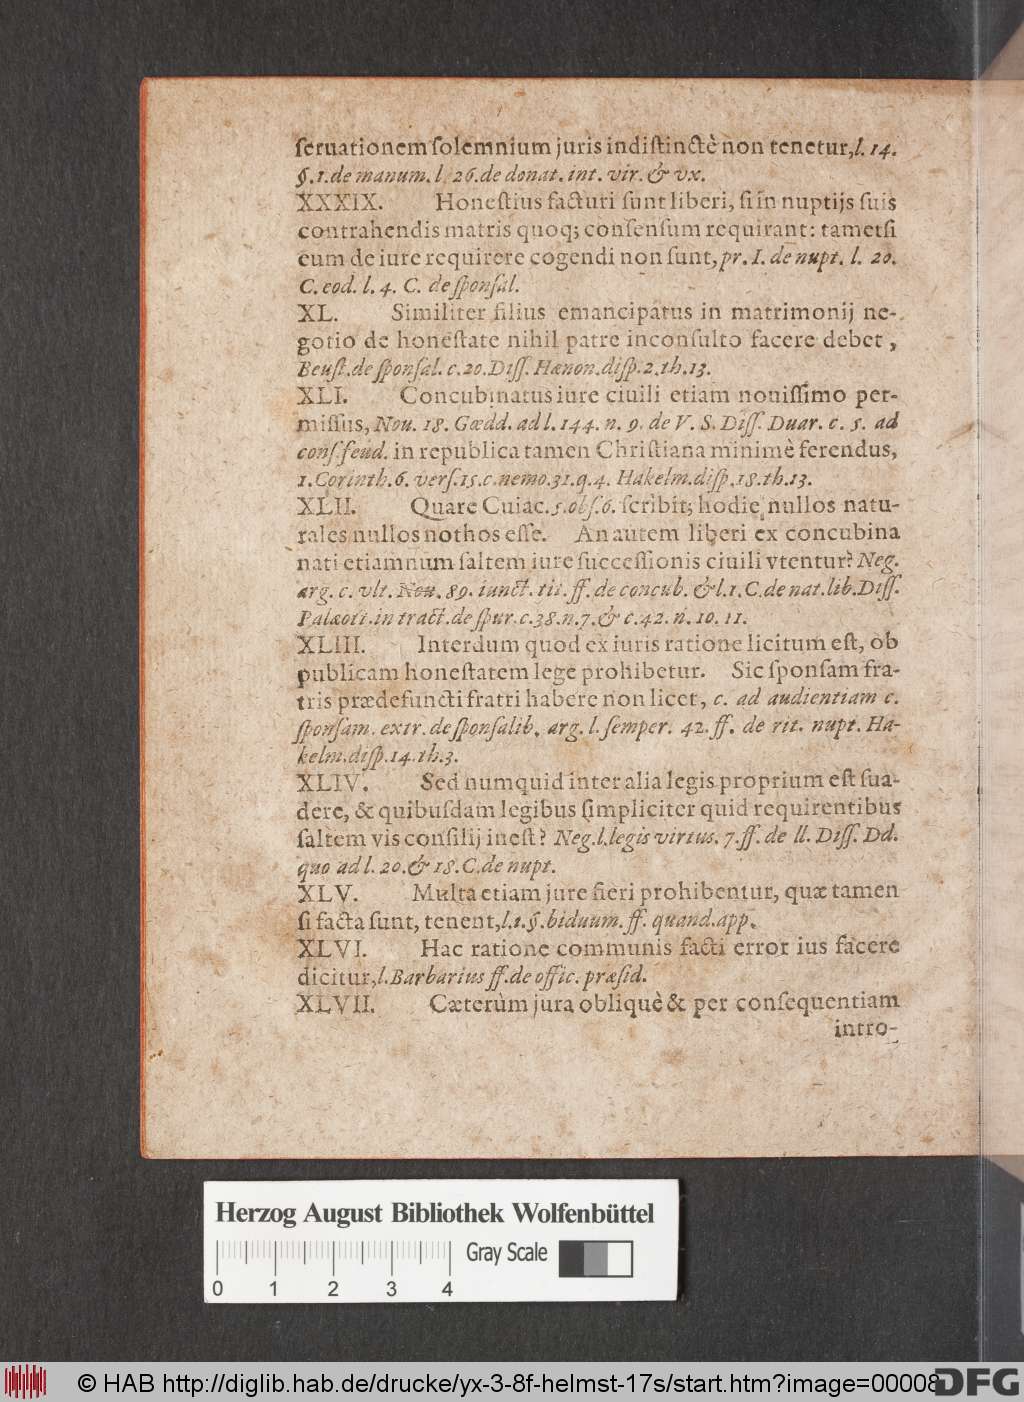 ſeruationem ſolemnium juris indiſtinctè non tenetur, l. 14.
§. 1. de manum. l. 26. de donat. int. vir. & vx.
XXXIX. Honeſtius facturi ſunt liberi, ſi in nuptijs ſuis
contrahendis matris quoq; conſenſum requirant: tametſi
eum de iure requirere cogendi non ſunt, pr. I. de nupt. l. 20.
C. eod. l. 4. C. de ſponſal.
XL. Similiter filius emancipatus in matrimonij ne-
gotio de honeſtate nihil patre inconſulto facere debet,
Beuſt. de ſponſal. c. 20. Diſſ. Hænon. diſp. 2. th. 13.
XLI. Concubinatus iure ciuili etiam nouiſſimo per-
miſſus, Nou. 18. Gœdd. ad l. 144. n. 9. de V. S. Diſſ. Duar. c. 5. ad
conſ. feud. in republica tamen Chriſtiana minimè ferendus,
1. Corinth. 6. verſ. 15. c. nemo. 31. q. 4. Hakelm. diſp. 18. th. 13.
XLII. Quare Cuiac. 5. obſ. 6. ſcribit; hodie nullos natu-
rales nullos nothos eſſe. An autem liberi ex concubina
nati etiamnum ſaltem iure ſucceſſionis ciuili vtentur? Neg.
arg. c. vlt. Nou. 89. iunct. tit. ff. de concub. & l. 1. C. de nat. lib. Diſſ.
Palæott. in tract. de ſpur. c. 38. n. 7. & c. 42. n. 10. 11.
XLIII. Interdum quod ex iuris ratione licitum eſt, ob
publicam honeſtatem lege prohibetur. Sic ſponſam fra-
tris prædefuncti fratri habere non licet, c. ad audientiam c.
ſponſam. extr. de ſponſalib. arg. l. ſemper. 42. ff. de rit. nupt. Ha-
kelm. diſp. 14. th. 3.
XLIV. Sed numquid inter alia legis proprium eſt ſua-
dere, & quibuſdam legibus ſimpliciter quid requirentibus
ſaltem vis conſilij ineſt? Neg. l. legis virtus. 7. ff. de ll. Diſſ. Dd.
quo ad l. 20. & 18. C. de nupt.
XLV. Multa etiam jure fieri prohibentur, quæ tamen
ſi facta ſunt, tenent, l. 1. §. biduum. ff. quand. app.
XLVI. Hac ratione communis facti error ius facere
dicitur, l. Barbarius ff. de offic. præſid.
XLVII. Cæterùm jura obliquè & per conſequentiam
intro-
Herzog August Bibliothek Wolfenbüttel
Gray Scale
0 1 2 3 4
© HAB http://diglib.hab.de/drucke/yx-3-8f-helmst-17s/start.htm?image=00008
DFG